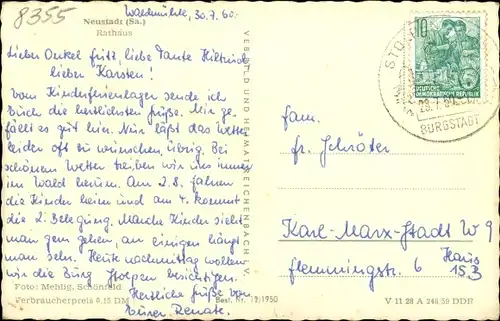 8355
Waldmühle, 30.7.60.
Neustadt (Sa.)
Rathaus
Lieber Onkel Fritz, liebe Tante Hiltrud
lieber Karsten!
Vom Kinderferienlager sende ich
Euch die herzlichsten Grüße. Mir ge-
fällt es gut hier. Nur läßt das Wetter
leider oft zu wünschen übrig. Bei
schönem Wetter treiben wir uns immer
im Wald herum. Am 2.8. fahren
die Kinder heim und am 4. kommt
die 2. Belegung. Manche Kinder sieht
man gern gehen, an einigen hängt
man sehr. Heute nachmittag wollen
wir die Burg Stolpen besichtigen.
Herzliche Grüße von
Eurer Renate.
Foto: Mehlig, Schönfeld
Verbraucherpreis 0,15 DM
Best. Nr. 12/1950
VEB BILD UND HEIMAT REICHENBACH I. V.
10
DEUTSCHE
DEMOKRATISCHE REPUBLIK
BURGSTADT
Fam.
Fr. Schröter
Karl-Marx-Stadt W 9
Flemmingstr. 6 Haus
15B
V 11 28 A 248/59 DDR